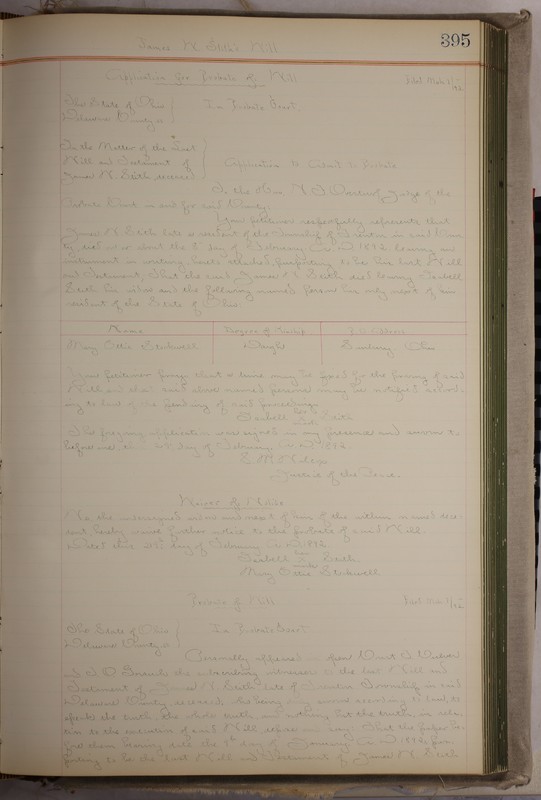 395
James N. Seith's Will
Application for Probate of Will
The State of Ohio
Delaware County ss
In Probate Court.
In the Matter of the Last
Will and Testament of
James N. Seith deceased
Application to Admit to Probate
To the Hon. Judge of the
Probate Court in and for said County:
Your petitioner respectfully represents that
James N. Seith late a resident of the Township of Trenton in said Coun-
ty, died on or about the day of February A.D. 1892, leaving an
instrument in writing, herewith attached, purporting to be his last Will
and Testament; that the said James N. Seith died leaving Isabell
Seith his widow and the following named persons his only next of kin
resident of the State of Ohio
Name
Degree of Kinship
P.O. Address
Mary Ottie Stockwell
Daught
Sunbury Ohio
Your petitioner prays that a time may be fixed for the proving of said
Will and that said above named persons may be notified accord-
ing to law of the pending of said proceedings.
Isabell her x mark Seith
The foregoing application was signed in my presence and sworn to
before me, this day of February A.D. 1892.
Justice of the Peace.
Waiver of Notice
We, the undersigned widow and next of kin of the within named dece-
dent, hereby waive further notice to the probate of said Will.
Dated this day of February A.D. 1892
Isabell her x mark Seith.
Mary Ottie Stockwell
Probate of Will
The State of Ohio
Delaware County ss
In Probate Court
Personally appeared in open Court
the subscribing witnesses to the last Will and
Testament of James N. Seith late of Trenton Township in said
Delaware County deceased, who being duly sworn according to law, to
speak the truth, the whole truth and nothing but the truth, in rela-
tion to the execution of said Will depose and say: That the paper be-
fore them bearing date the day of January A.D. 1892, pur-
porting to be the last Will and Testament of James N. Seith